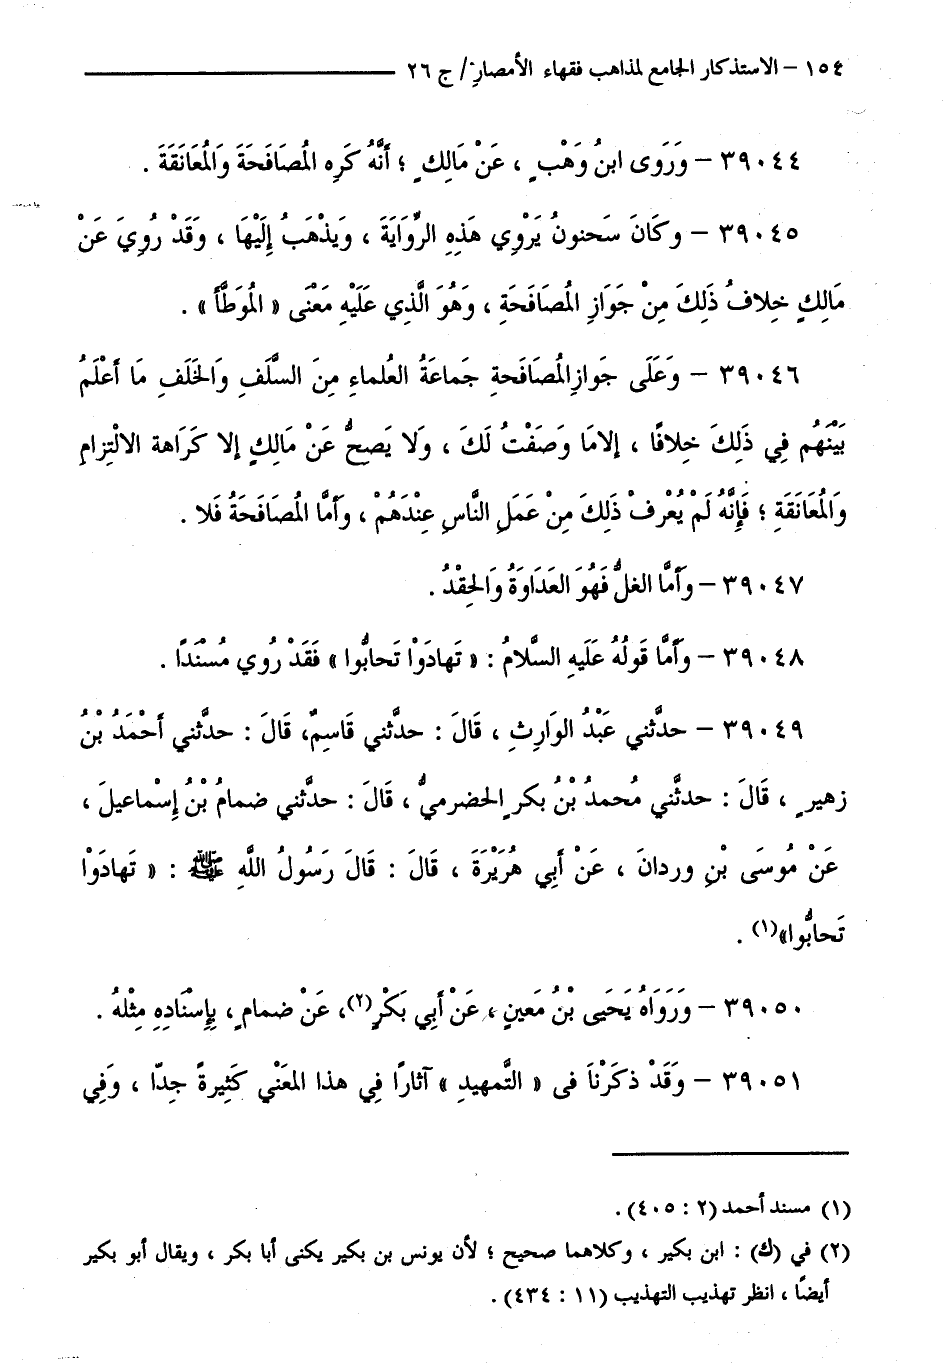 ١٥٤ – الاستذكار الجامع لمذاهب فقهاء الأمصار / ج ٢٦
٣٩٠٤٤ – وَرَوَى ابنُ وَهْبٍ ، عَنْ مَالِكٍ ؛ أَنَّهُ كَرِه المُصَافَحَةَ وَالمُعَانَقَةَ .
٣٩٠٤٥ – وكَانَ سَحنونُ يَرْوِي هَذِهِ الرِّوَايَةَ ، ويَذْهَبُ إِلَيْهَا ، وَقَدْ رُوِيَ عَنْ
مَالِكٍ خِلافُ ذَلِكَ مِنْ جَوَازِ المُصَافَحَةِ ، وَهُوَ الَّذِي عَلَيْهِ مَعْنَى « المُوَطَّأ » .
٣٩٠٤٦ – وَعَلَى جَوازِالمُصَافَحةِ جَماعَةُ العُلماءِ مِنَ السَّلَفِ وَالخَلَفِ مَا أَعْلَمُ
بَيْنَهُم فِي ذَلِكَ خلافًا ، إلامَا وَصَفْتُ لَكَ ، وَلا يَصحُّ عَنْ مَالِكٍ إلا كَرَاهة الالْتِزامِ
وَالمُعَانَقَةِ ؛ فَإِنَّهُ لَمْ يُعْرفْ ذَلِكَ مِنْ عَمَلِ النَّاسِ عِنْدَهُمْ ، وأَمَّا المُصَافَحَةُ فَلا .
٣٩٠٤٧ – وأَمَّا الغلُّ فَهُوَ العَدَاوَةُ وَالحِقْدُ .
٣٩٠٤٨ – وأَمَّا قَولُهُ عَلَيهِ السَّلامُ : « تَهادَوْا تَحابُّوا » فَقَدْ رُوي مُسْنَدًا .
٣٩٠٤٩ – حدَّثني عَبْدُ الوَارِثِ ، قَالَ : حدَّثني قَاسِمٌ، قَالَ : حدَّثني أَحْمَدُ بْنُ
زهيرٍ ، قَالَ : حدثَّني مُحمدُ بْنُ بكرٍ الحضرميُّ ، قَالَ : حدَّثني ضمامُ بْنُ إِسْماعيلَ ،
عَنْ مُوسَى بْنِ وردانَ ، عَنْ أَبِي هُرَيْرَةَ ، قَالَ : قَالَ رَسُولُ اللَّهِ ﷺ : « تَهادَوْا
تَحابُّوا»(١) .
٣٩٠٥٠ – وَرَوَاهُ يَحيَى بْنُ مَعينٍ ، عَنْ أَبِي بَكْرٍ(٢)، عَنْ ضمامٍ ، بِإِسْنَادِهِ مِثْلهُ .
٣٩٠٥١ – وَقَدْ ذكَرْنَا فى « التَّمهيدِ » آثارًا فِي هذا المَعْنَي كَثِيرةً جدّا ، وَفِي
(١) مسند أحمد (٢ : ٤٠٥) .
(٢) في (ك) : ابن بكير ، وكلاهما صحيح ؛ لأن يونس بن بكير يكنى أبا بكر ، ويقال أبو بكير
أيضًا ، انظر تهذيب التهذيب (١١ : ٤٣٤) .